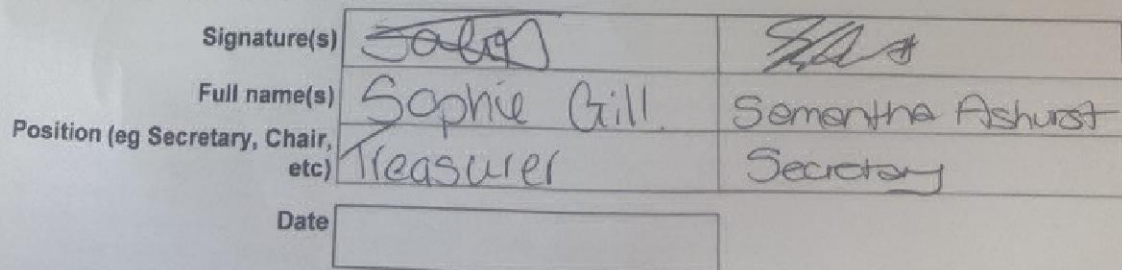 Signature(s)
Full name(s) Sophie Gill Samantha Ashurst
Position (eg Secretary, Chair,
etc) Treasurer Secretary
Date